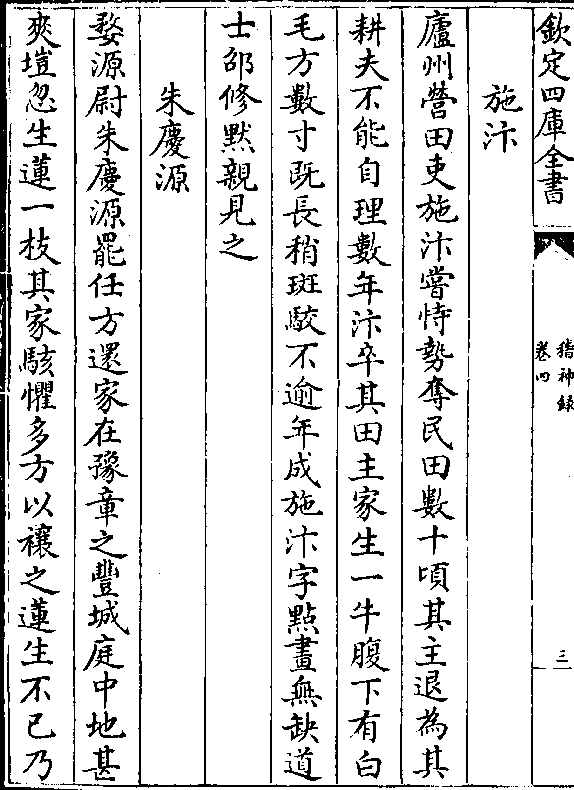 欽定四庫全書
稽神錄
卷四
三
施汴
廬州營田吏施汴嘗恃勢奪民田數十頃其主退為其
耕夫不能自理數年汴卒其田主家生一牛腹下有白
毛方數寸既長稍斑駮不逾年成施汴字點畫無缺道
士邵修默親見之
朱慶源
婺源尉朱慶源罷任方還家在豫章之豐城庭中地甚
爽塏忽生蓮一枝其家駭懼多方以禳之蓮生不已乃